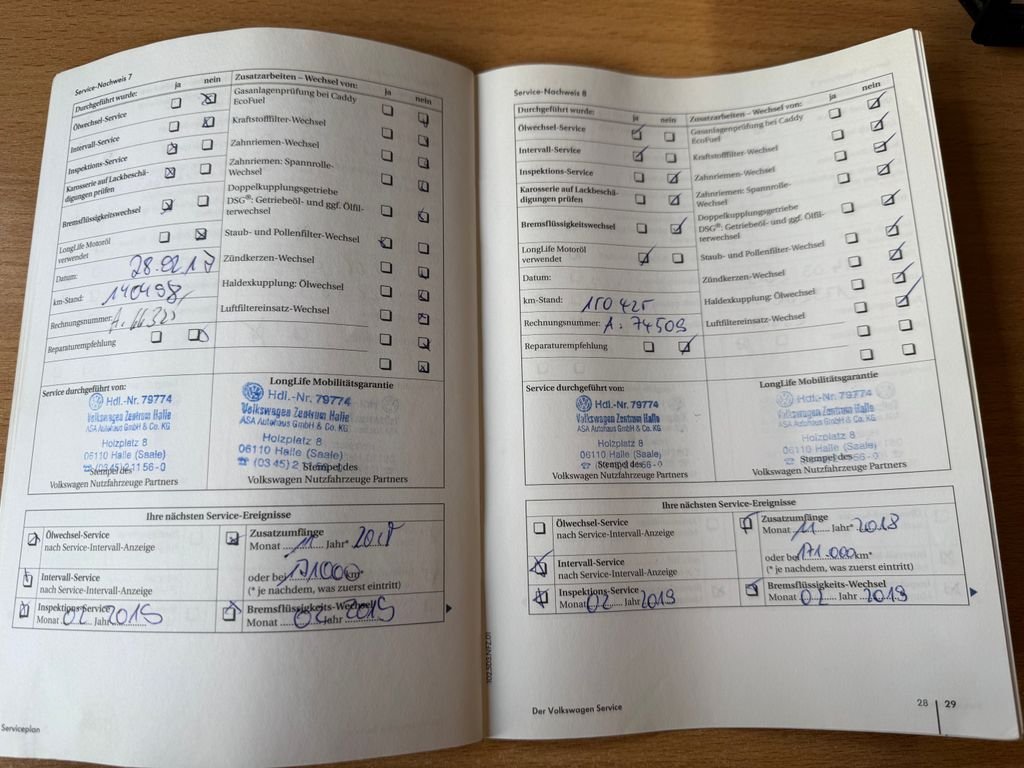 Service-Nachweis 7
Durchgeführt wurde: ja nein
Ölwechsel-Service
Intervall-Service
Inspektions-Service
Karosserie auf Lackbeschä-
digungen prüfen
Bremsflüssigkeitswechsel
LongLife Motoröl
verwendet
Datum: 28.02.17
km-Stand: 140498
Rechnungsnummer:
Reparaturempfehlung
Zusatzarbeiten – Wechsel von: ja nein
Gasanlagenprüfung bei Caddy
EcoFuel
Kraftstofffilter-Wechsel
Zahnriemen-Wechsel
Zahnriemen: Spannrolle-
Wechsel
Doppelkupplungsgetriebe
DSG®: Getriebeöl- und ggf. Ölfil-
terwechsel
Staub- und Pollenfilter-Wechsel
Zündkerzen-Wechsel
Haldexkupplung: Ölwechsel
Luftfiltereinsatz-Wechsel
Service durchgeführt von:
Hdl.-Nr. 79774
Volkswagen Zentrum Halle
ASA Autohaus GmbH & Co. KG
Holzplatz 8
06110 Halle (Saale)
☎ (0345) 2 11 56 - 0
Stempel des
Volkswagen Nutzfahrzeuge Partners
LongLife Mobilitätsgarantie
Hdl.-Nr. 79774
Volkswagen Zentrum Halle
ASA Autohaus GmbH & Co. KG
Holzplatz 8
06110 Halle (Saale)
Stempel des
Volkswagen Nutzfahrzeuge Partners
Ihre nächsten Service-Ereignisse
Ölwechsel-Service
nach Service-Intervall-Anzeige
Intervall-Service
nach Service-Intervall-Anzeige
Inspektions-Service
Monat 02 Jahr 2019
Zusatzumfänge
Monat 11 Jahr* 2018
oder bei 171000 km*
(* je nachdem, was zuerst eintritt)
Bremsflüssigkeits-Wechsel
Monat 02 Jahr 2019
Serviceplan
102.5D3.NFZ.01
Service-Nachweis 8
Durchgeführt wurde: ja nein
Ölwechsel-Service
Intervall-Service
Inspektions-Service
Karosserie auf Lackbeschä-
digungen prüfen
Bremsflüssigkeitswechsel
LongLife Motoröl
verwendet
Datum:
km-Stand: 150425
Rechnungsnummer: A. 74509
Reparaturempfehlung
Zusatzarbeiten – Wechsel von: ja nein
Gasanlagenprüfung bei Caddy
EcoFuel
Kraftstofffilter-Wechsel
Zahnriemen-Wechsel
Zahnriemen: Spannrolle-
Wechsel
Doppelkupplungsgetriebe
DSG®: Getriebeöl- und ggf. Ölfil-
terwechsel
Staub- und Pollenfilter-Wechsel
Zündkerzen-Wechsel
Haldexkupplung: Ölwechsel
Luftfiltereinsatz-Wechsel
Service durchgeführt von:
Hdl.-Nr. 79774
Volkswagen Zentrum Halle
ASA Autohaus GmbH & Co. KG
Holzplatz 8
06110 Halle (Saale)
Stempel des
Volkswagen Nutzfahrzeuge Partners
LongLife Mobilitätsgarantie
Hdl.-Nr. 79774
Volkswagen Zentrum Halle
ASA Autohaus GmbH & Co. KG
Holzplatz 8
06110 Halle (Saale)
Stempel des
Volkswagen Nutzfahrzeuge Partners
Ihre nächsten Service-Ereignisse
Ölwechsel-Service
nach Service-Intervall-Anzeige
Intervall-Service
nach Service-Intervall-Anzeige
Inspektions-Service
Monat 02 Jahr 2019
Zusatzumfänge
Monat 11 Jahr* 2018
oder bei 171.000 km*
(* je nachdem, was zuerst eintritt)
Bremsflüssigkeits-Wechsel
Monat 02 Jahr 2019
Der Volkswagen Service
28 | 29